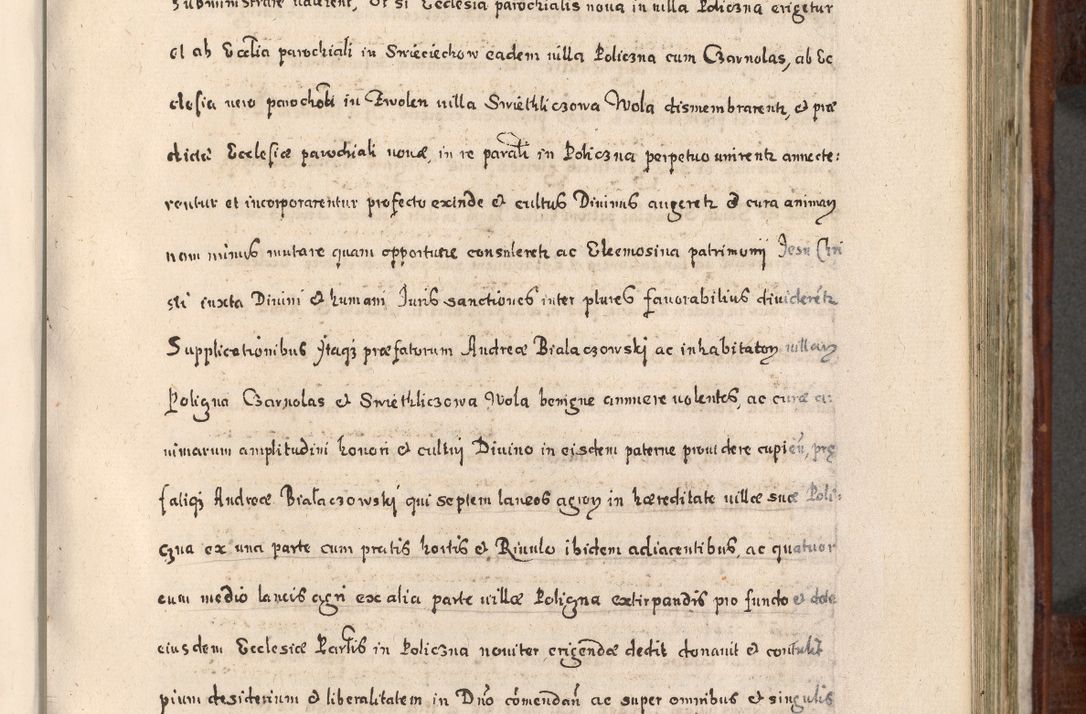 subministrare valerent, Et si Ecclesia parochialis noua in uilla Policzna erigetur
et ab Eccl̃ia parochiali in Swieciechow eadem uilla Policzna cum Czarnolas, ab Ec
clesia uero parochiali in Zwolen uilla Swiethliczowa Wola dismembrarentr, et præ
dictæ Ecclesiæ parochiali nouæ, in re parãli in Policzna perpetuo unirentr annecte:
rentur et incorporarentur profecto exinde et cultus Diuinus augeretr et cura animarum
non minus mutare quam opportune consuleretr ac Eleemosina patrimonij Jesu Chri
sti iuxta Diuini et humani Juris sanctiones inter plures fauorabilius diuideretr
Supplicationibus Jtaqz præfatorum Andreæ Bialaczowski ac inhabitatorum uillarum
Poligna Czarnolas et Swiethliczowa Wola benigne annuere uolentes, ac curæ a:
nimarum amplitudini honori et cultui Diuino in eisdem paterne prouidere cupieñ, præ
fatiqz Andreæ Białaczowski qui septem laneos agrorum in hæreditate uillæ suæ Poli:
czna ex una parte cum pratis hortis et Riuulo ibidem adiacentibus, ac quatuor
cum medio laneis agri ex alia parte uillæ Poligna extirpandis pro fundo et dote
eiusdem Ecclesiæ Parlis in Policzna nouiter erigendæ dedit donauit et contulit
pium desiderium et liberalitatem in Dnõ cõmendañ ac super omnibus et singulis